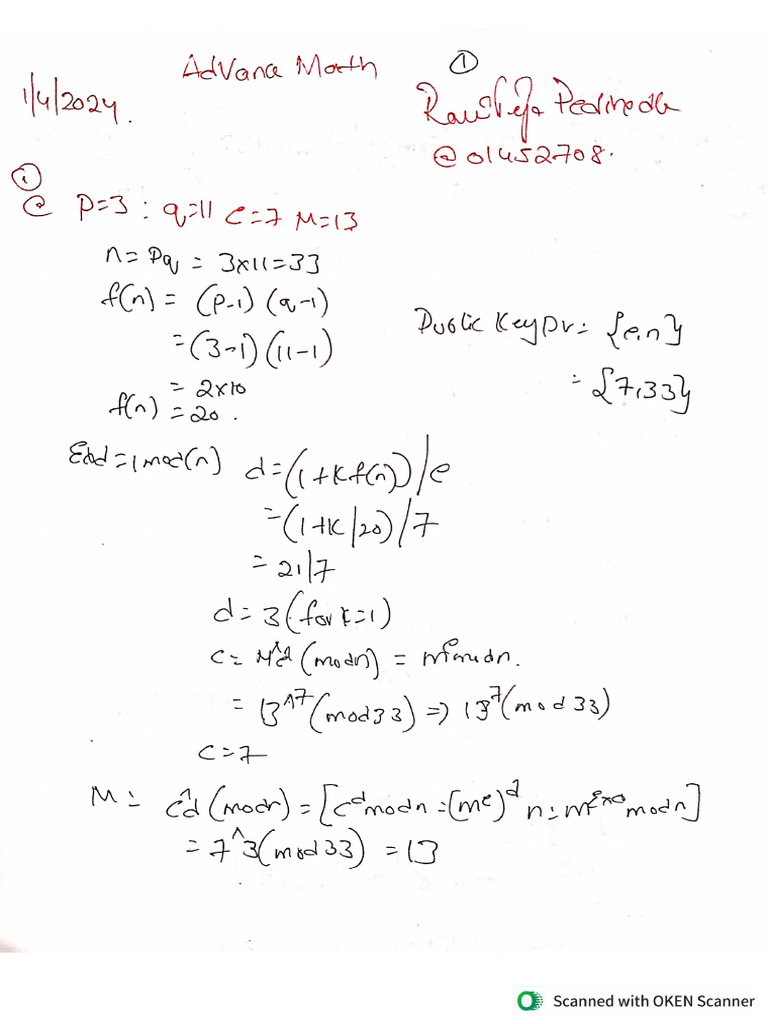 AdVance Math ①
1/4/2024.
@01452708.
①
@ P=3 : q=11 e=7 M=13
n= Pq = 3x11=33
f(n) = (P-1) (q-1)
= (3-1) (11-1)
= 2x10
f(n) = 20.
Public Key Pr = {e,n}
= {7,33}
Exd=1mod(n) d = (1+Kf(n))/e
= (1+K/20)/7
= 21/7
d = 3 (for k=1)
C = M^e (modn) = m^e modn.
= 13^7 (mod 33) => 13^7 (mod 33)
C = 7
M = c^d (modn) = [c^d modn = (m^e)^d n = m^exd modn]
= 7^3 (mod 33) = 13
Scanned with OKEN Scanner